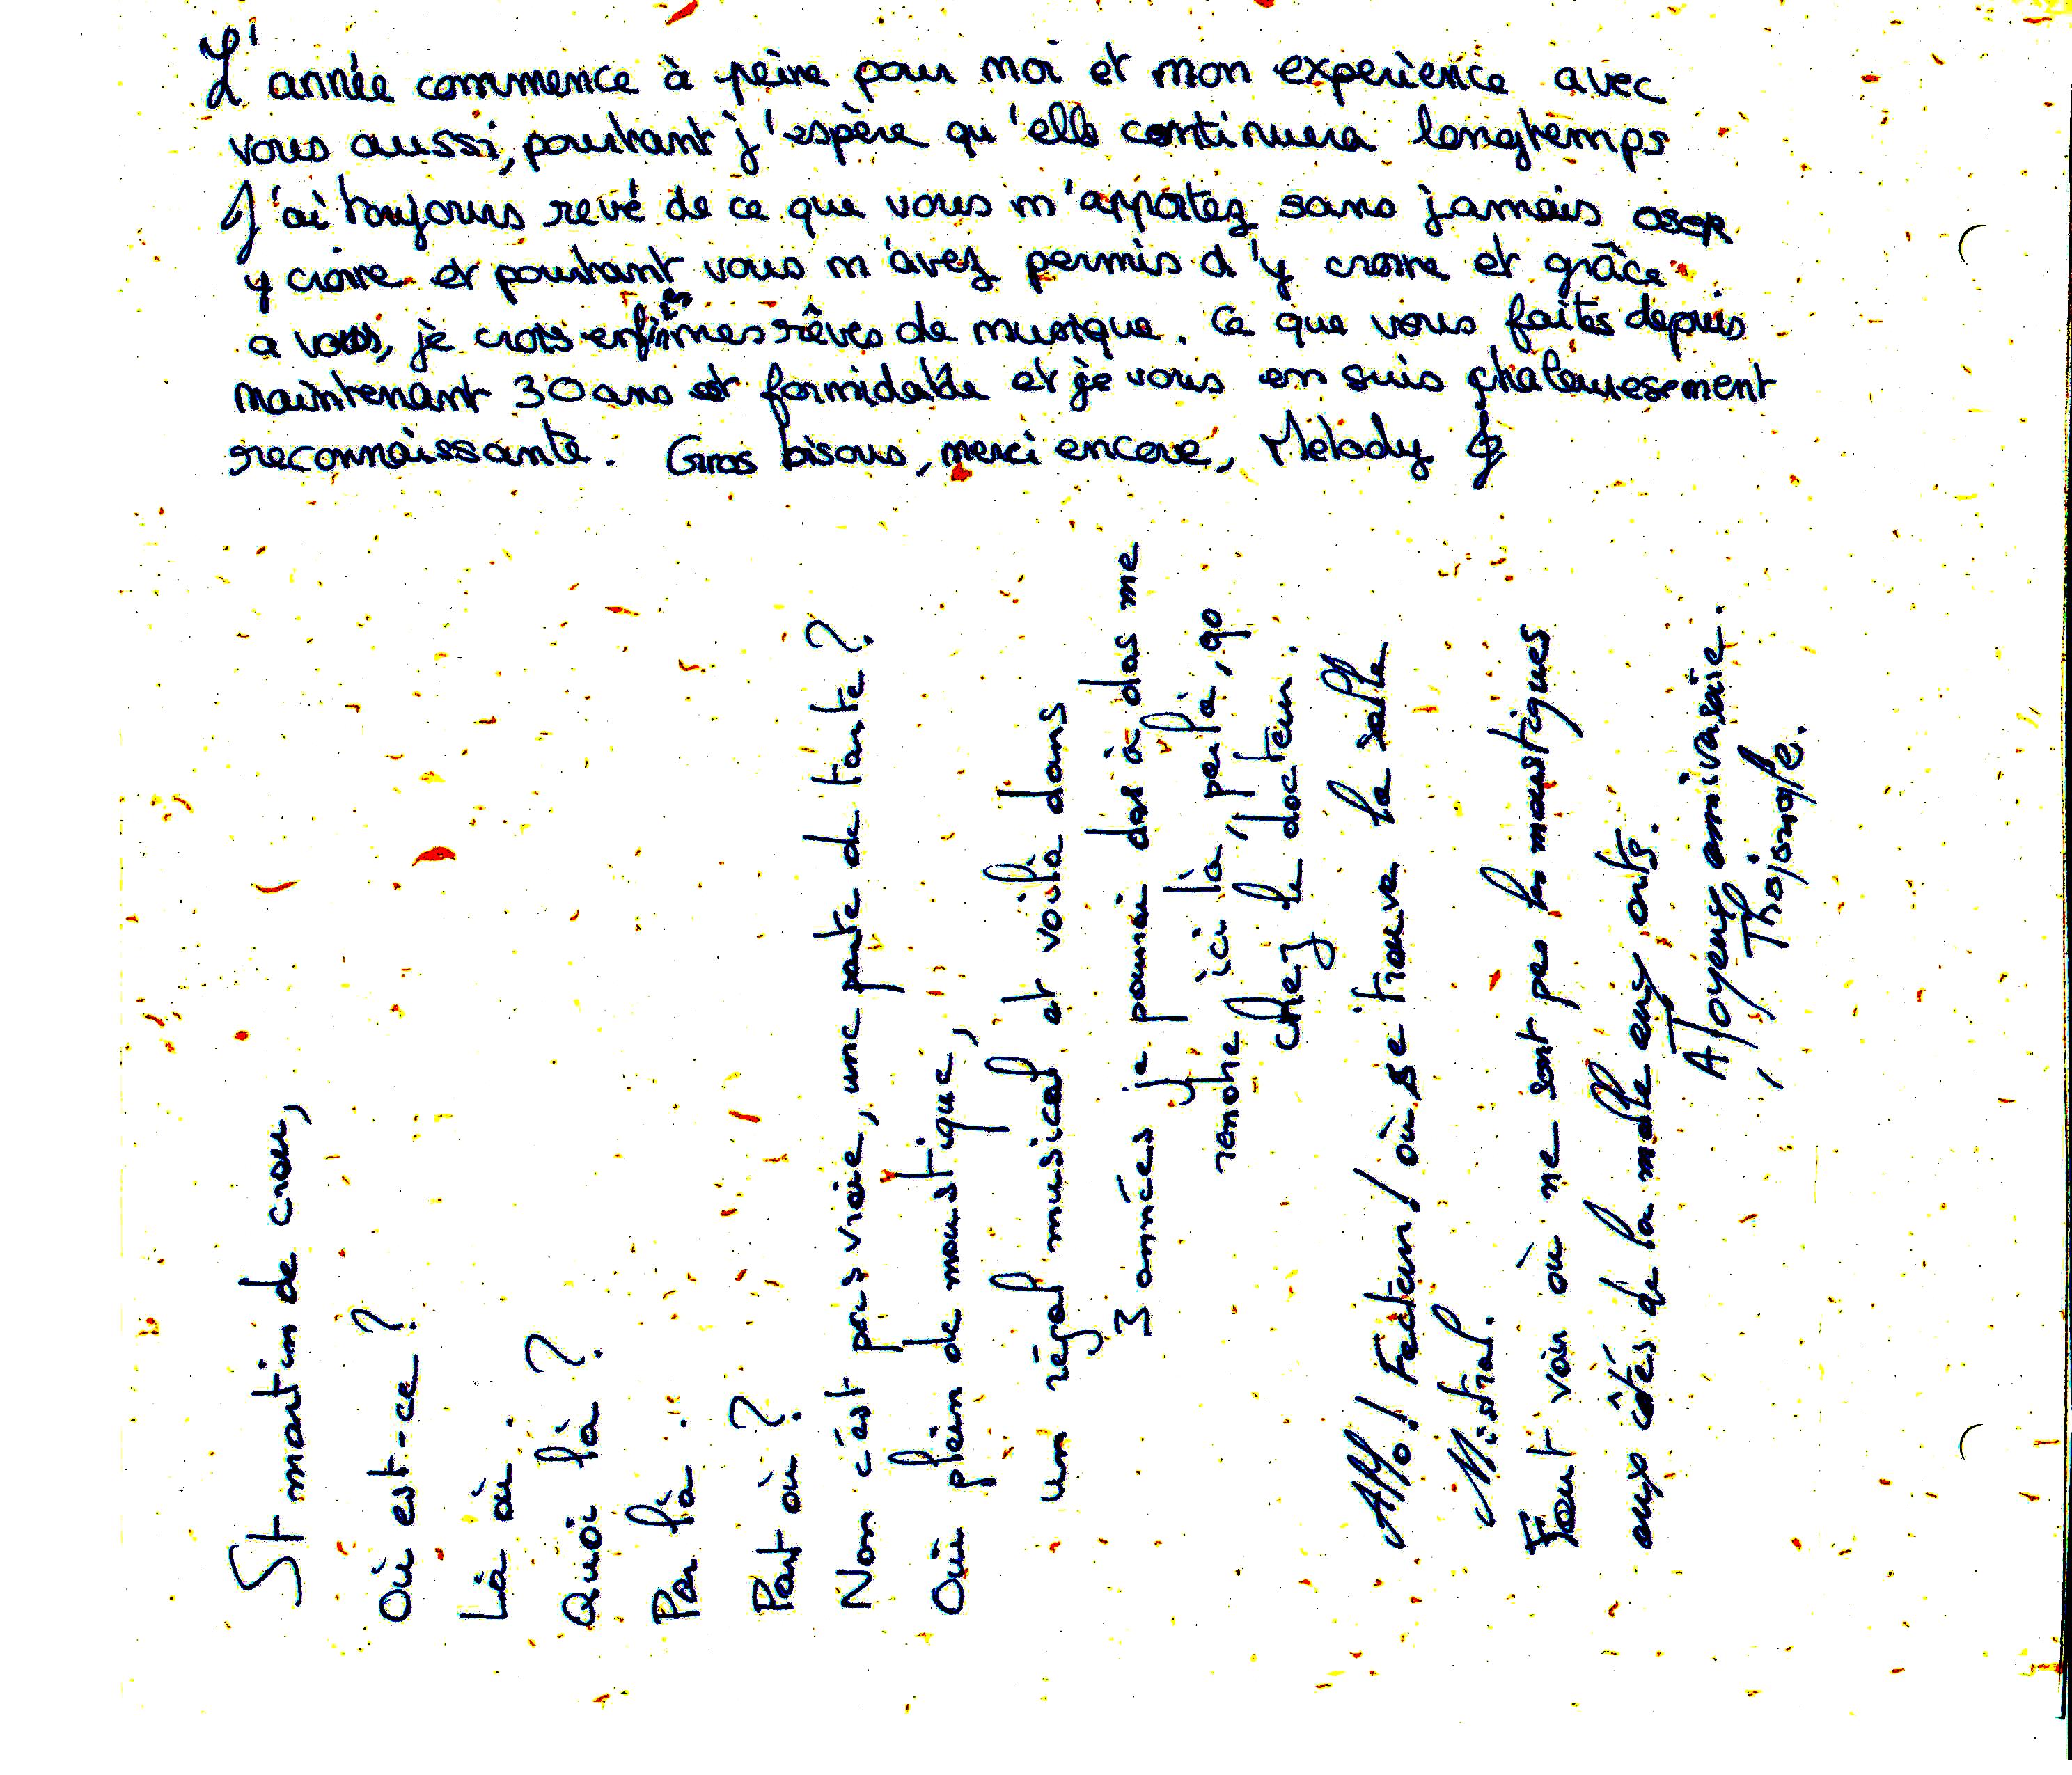 L'année commence à peine pour moi et mon experience avec
vous aussi, pourtant j'espère qu'elle continuera longtemps
J'ai toujours revé de ce que vous m'apportez sans jamais oser
y croire et pourtant vous m'avez permis d'y croire et grâce
a vous, je crois enfin mes rêves de musique. Ce que vous faites depuis
maintenant 30 ans est formidable et je vous en suis chaleuresement
reconnaissante. Gros bisous, merci encore, Mélody
St martin de crau,
Où est-ce ?
Là où.
Quoi là ?
Par là.
Part où ?
Non c'est pas vraie, une parte de tarte ?
Oui plein de moustique,
un régal musical et voila dans
3 années je pourrai dos à dos me
rendre ici là, par là, go
chez le docteur.
Allo! Facteur! où se trouve la salle
Mistral.
Faut voir où ne sont pas les moustiques
aux côtés de la malle aux arts.
A Joyeux annivasaie.